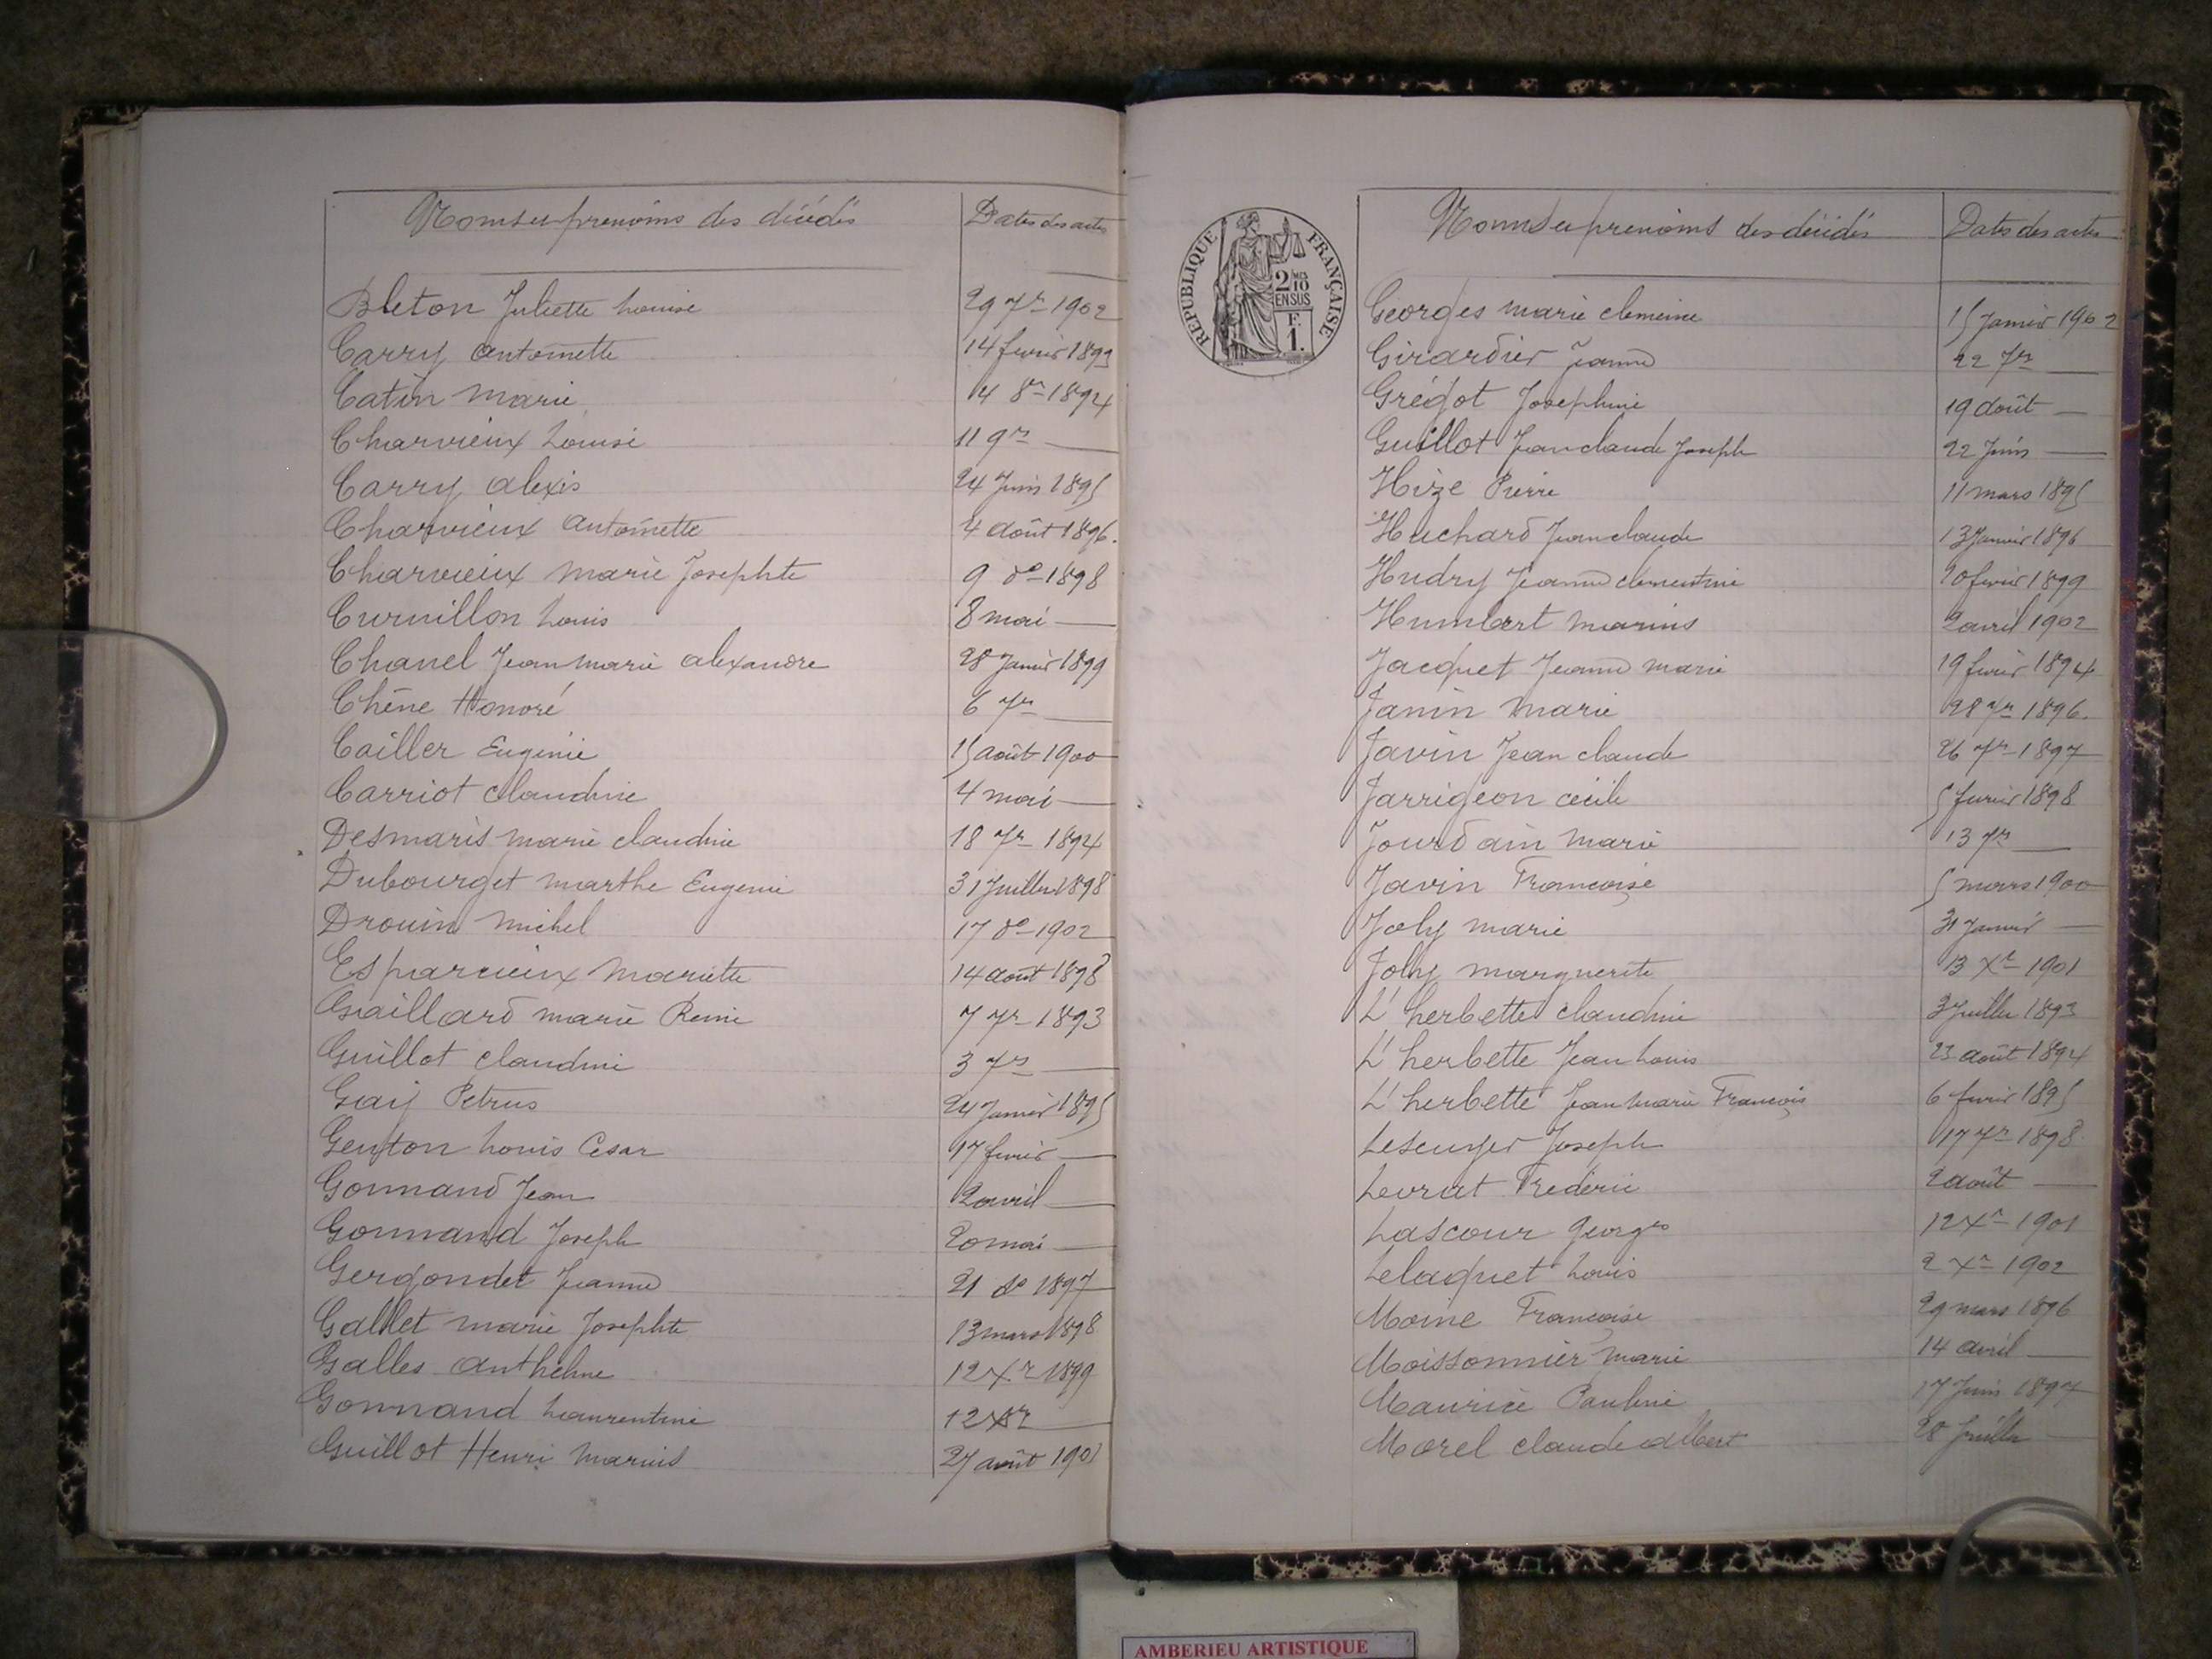 Noms et prenoms des décédés Dates des actes
Bleton Juliette Louise 29 7r 1902
Carry Antoinette 14 fevrier 1893
Catin Marie 14 8r 1894
Charvieux Louise 11 9r —
Carry Alexis 24 Juin 1895
Charvieux Antoinette 4 août 1896.
Charvieux Marie Josephte 9 do 1898
Curvillon Louis 8 mai —
Chanel Jean Marie Alexandre 28 Janvier 1899
Chêne Honoré 6 7r —
Cailler Eugénie 15 août 1900
Carriot Claudine 4 mai —
Desmaris Marie Claudine 18 7r 1894
Dubourget Marthe Eugenie 31 Juillet 1898
Drouin Michel 17 do 1902
Esparcieux Mariette 14 août 1898
Gaillard Marie Reine 7 7r 1893
Guillot Claudine 3 7r —
Gay Petrus 24 Janvier 1895
Genton Louis Cesar 17 fevrier —
Gonnand Jean 2 avril —
Gonnand Joseph 20 mai —
Gergondet Jeanne 21 do 1897
Gallet Marie Josephte 13 mars 1898
Galles Anthelme 12 Xr 1899
Gonnand Laurentine 12 —
Guillot Henri Marius 27 août 1901
REPUBLIQUE FRANÇAISE
2/10MES
EN SUS
F.
1.
Noms et prenoms des décédés Dates des actes
Georges Marie Clemence 15 Janvier 1902
Girardier Jeanne 22 7r —
Grégot Josephine 19 août —
Guillot Jean Claude Joseph 22 Juin —
Hize Pierre 11 mars 1895
Huchard Jean Claude 13 Janvier 1896
Hudry Jeanne Clementine 20 fevrier 1899
Humbert Marius 2 avril 1902
Jacquet Jeanne Marie 19 fevrier 1894
Janin Marie 28 7r 1896.
Javin Jean Claude 26 7r 1897
Jarrigeon Cécile 5 fevrier 1898
Jourdain Marie 13 7r —
Javin Françoise 5 mars 1900
Joly Marie 31 Janvier —
Joly Marguerite 13 Xr 1901
L'herbette Claudine 3 Juillet 1893
L'herbette Jean Louis 23 août 1894
L'herbette Jean Marie François 6 fevrier 1895
Joseph 17 7r 1898
Levrat Frédéric 2 août —
Lascour Georges 12 Xr 1901
Lelaquet Louis 2 Xr 1902
Moine Françoise 29 mars 1896
Moissonnier Marie 14 avril —
Maurice Pauline 17 Juin 1897
Morel Claude Albert 28 Juillet —
AMBERIEU ARTISTIQUE